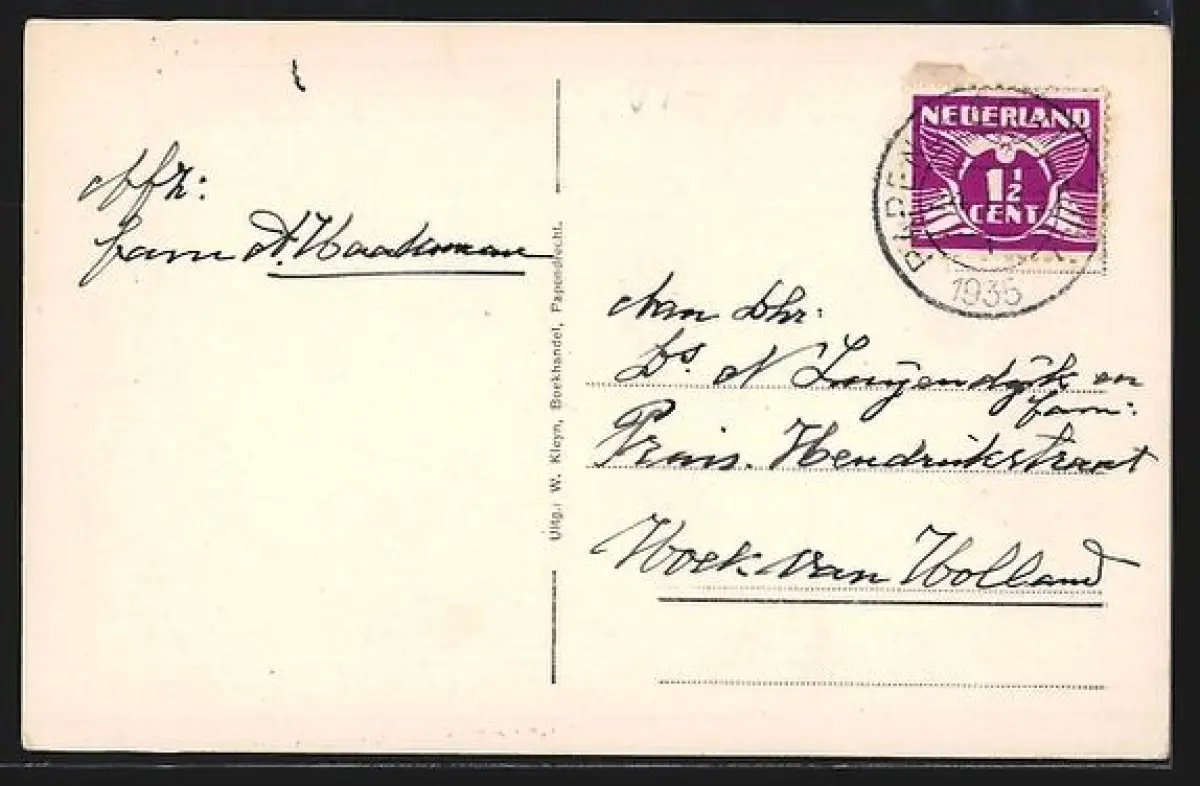 Afz:
fam A. Haaksman
Uitg.: W. Kleyn, Boekhandel, Papendrecht.
NEDERLAND
1½
CENT
PAPEN
1935
Aan Dhr:
Ds N Luijendijk en
fam:
Prins. Hendrikstraat
Hoek van Holland